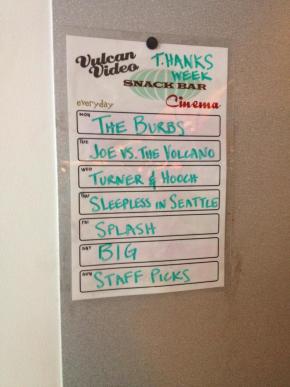 Vulcan Video T.HANKS WEEK
SNACK BAR
everyday Cinema
MON THE BURBS
TUE JOE VS. THE VOLCANO
WED TURNER & HOOCH
THU SLEEPLESS IN SEATTLE
FRI SPLASH
SAT BIG
SUN STAFF PICKS